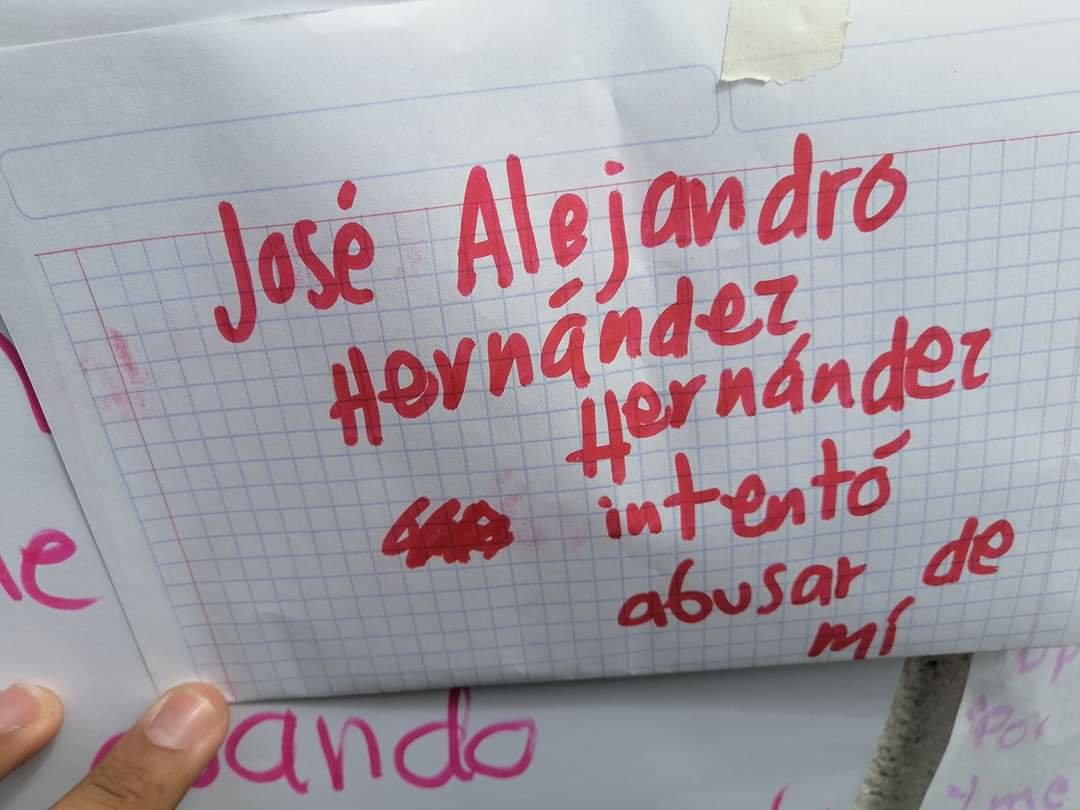 José Alejandro
Hernández
Hernández
intentó
abusar de
mí
ando
Por
me